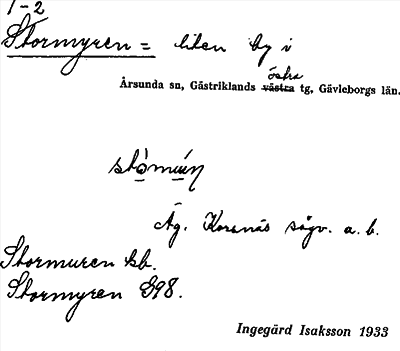 1-2
Stormyren = liten by i
östra
Årsunda sn, Gästriklands västra tg, Gävleborgs län.
Äg. Korsnäs sågv. a. b.
Stormuren kb.
Stormyren G98.
Ingegärd Isaksson 1933